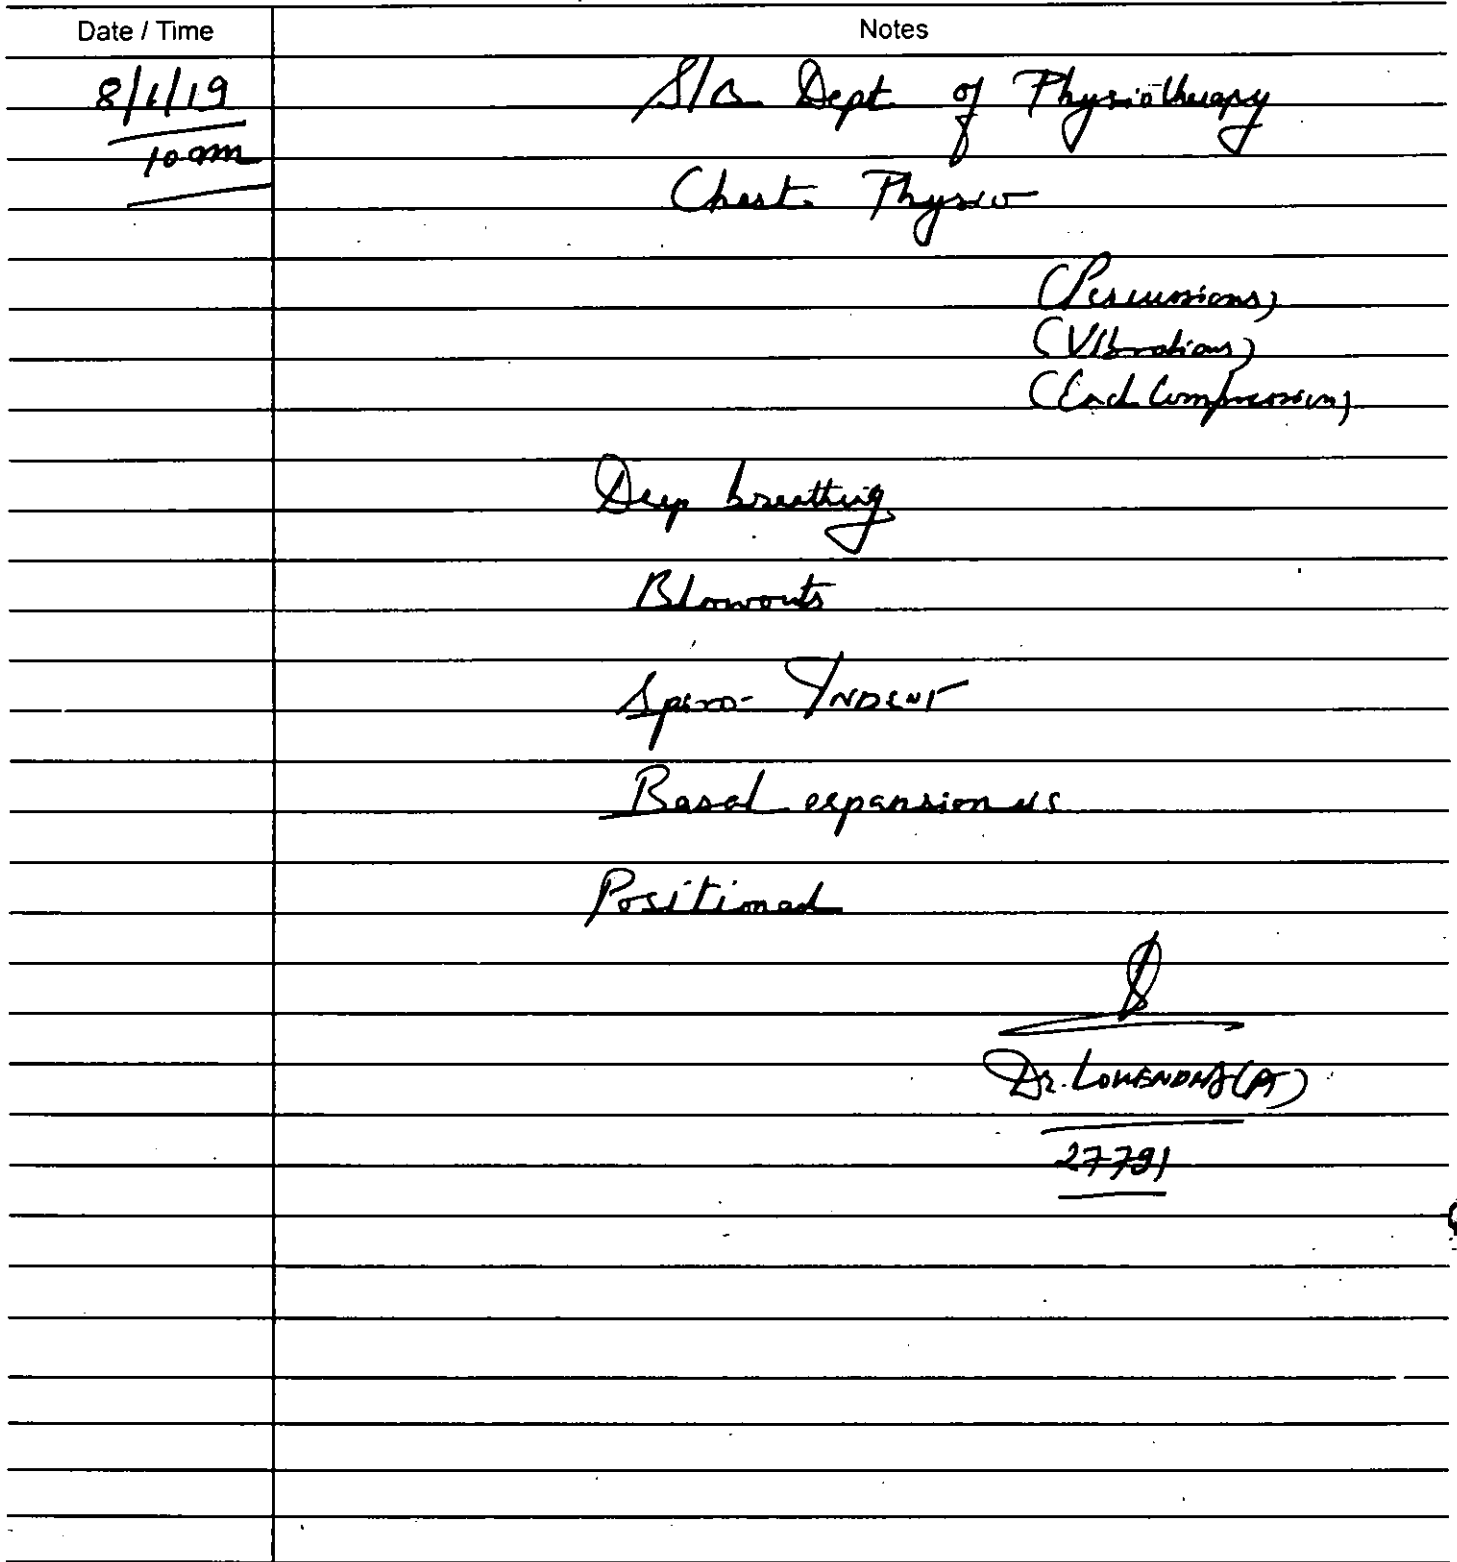 Date / Time Notes
8/1/19 S/B Dept of Physiotherapy
10am
Chest Physio
(Percussions)
(Vibrations)
(End Compression)
Deep breathing
Blowouts
Spiro-
Basal expansion
Positioned
Dr. (PT)
27791